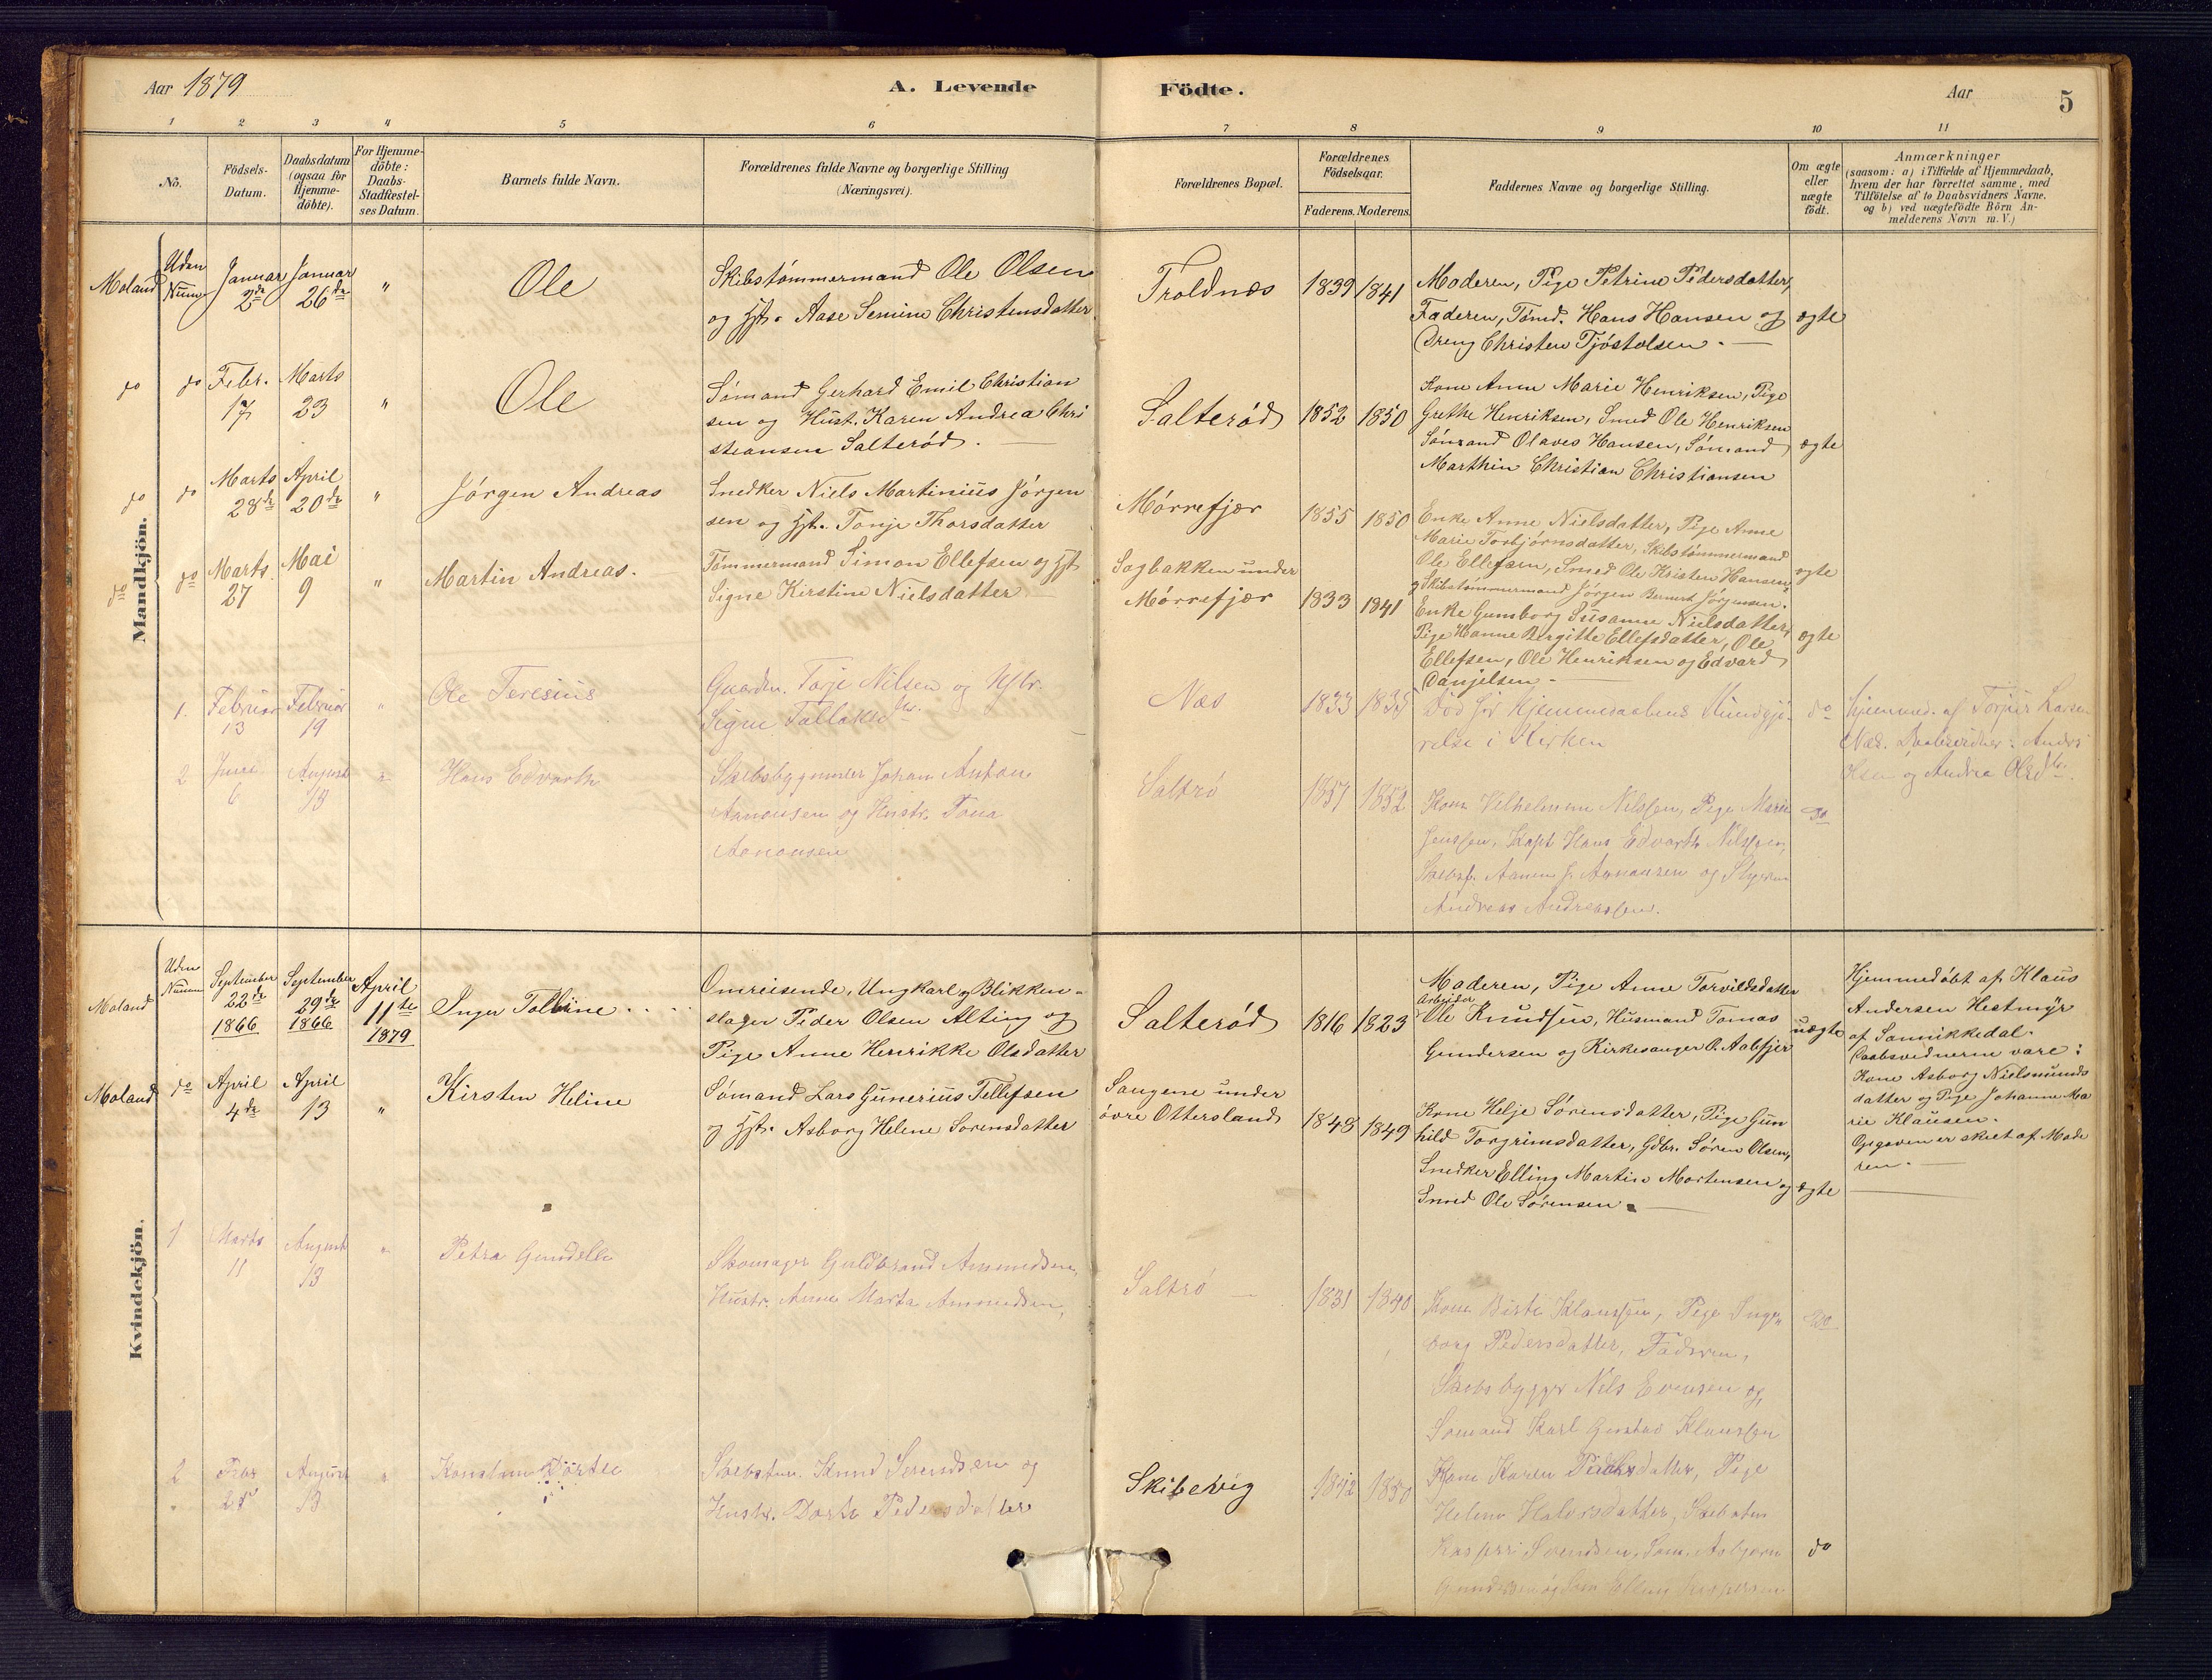 Aar 1879
A. Levende
Födte.
Aar
5
1 2 3 4 5 6 7 8 9 10 11
No.
Födsels-
Datum.
Daabsdatum
(ogsaa for
Hjemme-
döbte).
For Hjemme-
döbte:
Daabs-
Stadfæstel-
ses Datum.
Barnets fulde Navn.
Forældrenes fulde Navne og borgerlige Stilling
(Næringsvei).
Forældrenes Bopæl.
Forældrenes
Födselsaar.
Faderens. Moderens.
Faddernes Navne og borgerlige Stilling.
Om ægte
eller
uægte
födt.
Anmærkninger
(saasom: a) i Tilfælde af Hjemmedaab,
hvem der har forrettet samme, med
Tilföielse af to Daabsvidners Navne,
og b) ved uægtefödte Börn An-
melderens Navn m.V.)
Mandkjön.
Moland
Uden
Num
Januar
2de
Januar
26de
"
Ole
Skibstømmermand Ole Olsen
og Hst. Aase Semine Christensdatter
Troldnæs
1839 1841
Moderen, Pige Petrine Pedersdatter,
Faderen, Tømd. Hans Hansen og
Dreng Christen Tjøstolsen. —
ægte
do do
Febr.
17
Marts
23
"
Ole
Sømand Gerhard Emil Christian
sen og Hust. Karen Andrea Chri
steansen Salterød. —
Salterød
1852 1850
Kone Anne Marie Henriksen, Pige
Grethe Henriksen, Smed Ole Henriksen
Sømand Olaves Hansen, Sømand
Marthin Christian Christiansen
ægte
do do
Marts
28de
April
20de
"
Jørgen Andreas
Snedker Niels Martinius Jørgen
sen og Hst. Tonje Thorsdatter
Mørrefjær
1855 1850
Enke Anne Nielsdatter, Pige Anne
Marie Torbjørnsdatter, Skibstømmermand
Ole Ellefsen, Smed Ole Kristen Hansen
og Skibstømmermand Jørgen Bernert Jørgensen.
ægte
do do
Marts
27
Mai
9
"
Martin Andreas.
Tømmermand Simon Ellefsen og Hst
Signe Kirstine Nielsdatter
Sagbakken under
Mørrefjær
1833 1841
Enke Gunborg Susanne Nielsdatter,
Pige Hanne Birgitte Ellefsdatter, Ole
Ellefsen, Ole Henriksen og Edvard
Danjelsen —
ægte
1.
Februar
13
Februar
19
"
Ole Teresius
Gaardm. Torje Nilsen og Hstr.
Signe Tallaksdtr.
Næs
1833 1835
Død før Hjemmedaabens Kundgjø-
relse i Kirken
do
Hjemmed. af Torjus Larsen
Næs. Daabsvidner: Anders
Olsen og Andrea Olsdtr.
2
Juni
6
August
13
"
Hans Edvarth
Skibsbygmster Johan Anton
Aanonsen og Hustr. Tona
Aanonsen
Saltrø
1857 1852
Kone Vilhelmine Nilssen, Pige Marie
Jenssen, Kapt Hans Edvarth Nilssen,
Skibsf. Aanon J. Aanonsen og Styrm
Andreas Andreassen.
do
Kvindekjön.
Moland
Uden
Numm
September
22de
1866
September
29de
1866
April
11te
1879
Inger Tolline . . . .
Omreisende, Ungkarl og Blikken-
slager Peder Olsen Alting og
Pige Anne Henrikke Olsdatter
Salterød
1816 1823
Moderen, Pige Anne Torvildsdatter
Arbeider
Ole Knudsen, Husmand Tomas
Gundersen og Kirkesanger O. Aalefjer
uægte
Hjemmedøbt af Klaus
Andersen Hestmyr
af Sannikkedal.
Daabsvidnerne vare:
Kone Asborg Nielsmunds
datter og Pige Johanne Ma
rie Klausen.
Opgaven er skeet af Mode
ren. —
Moland do
April
4de
April
13
"
Kirsten Heline
Sømand Lars Gunerius Tellefsen
og Hst. Asborg Helene Sørensdatter
Saugene under
øvre Ottersland
1848 1849
Kone Helje Sørensdatter, Pige Gun
hild Torgrimsdatter, Gdbr. Søren Olsen,
Snedker Elling Martin Mortensen og
Smed Ole Sørensen. —
ægte
1
Marts
11
August
13
"
Petra Gundelle
Skomager Guldbrand Amundsen,
Hustr. Anne Marta Amundsen,
Saltrø —
1831 1840
Kone Birte Klaussen, Pige Inge-
borg Pedersdatter, Faderen,
Skibsbygger Nils Evensen og,
Sømand Karl Gustav Klaussen
do
2
August
13
"
Dortee
Knud Svendsen og
Hustr. Dorte Pedersdatter
Skibevig
1842 1850
Kone Karen Pedersdatter, Pige
Helene Halvorsdatter,
Kasper Svendsen, Søm. Asbjørn
do